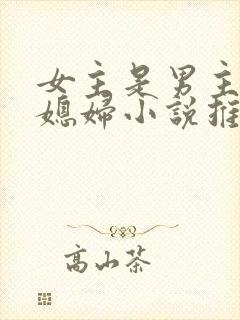 女主是男主
媳婦小說推
高山茶